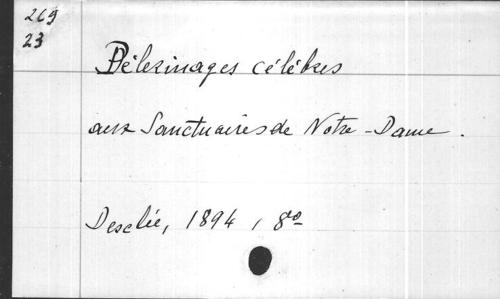 269
23
Pèlerinages célèbres
aux Sanctuaires de Notre-Dame.
Desclée, 1894, 8º